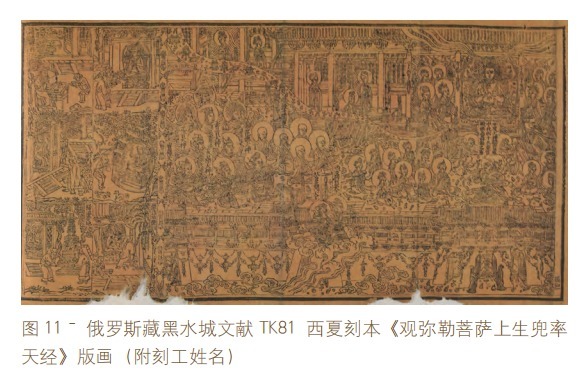 图 11 - 俄罗斯藏黑水城文献 TK81 西夏刻本《观弥勒菩萨上生兜率
天经》版画（附刻工姓名）